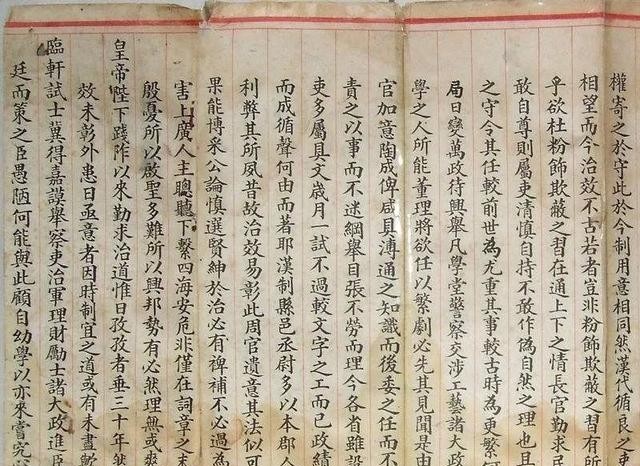 權寄之於守此於今制用意相同然漢代循良之吏
相望而今治效不古若者豈非粉飾欺蔽之習有所
乎欲杜粉飾欺蔽之習在通上下之情長官勤求
敢自尊則屬吏清慎自持不敢作偽自然之理也且
之守令其任較前世為尤重其事較古時為更繁
局日變萬政待興舉凡學堂警察交涉工藝諸大政
學之人所能董理將欲任以繁劇必先其見聞是由
官加意陶成俾咸具溥通之知識而後委之任而不
責之以事而不迷綱舉目張不勞而理今各省雖設
吏多屬具文歲月一試不過較文字之工而已政績
而成循聲何由而著耶漢制縣邑丞尉多以本郡人
利弊其所夙昔故治效易彰此周官遺意其法似可
果能博采公論慎選賢紳於治必有裨補不必過為
害上廣人主聰聽下繫四海安危非僅在詞章之末
殷憂所以啟聖多難所以興邦勢有必然理無或爽
皇帝陛下踐阼以來勤求治道惟日孜孜者垂三十年
效未彰外患日亟意者因時制宜之道或有未盡歟
臨軒試士冀得嘉謨舉察吏治軍理財勵士諸大政進臣
廷而策之臣愚陋何能與此顧自幼學以亦來嘗究